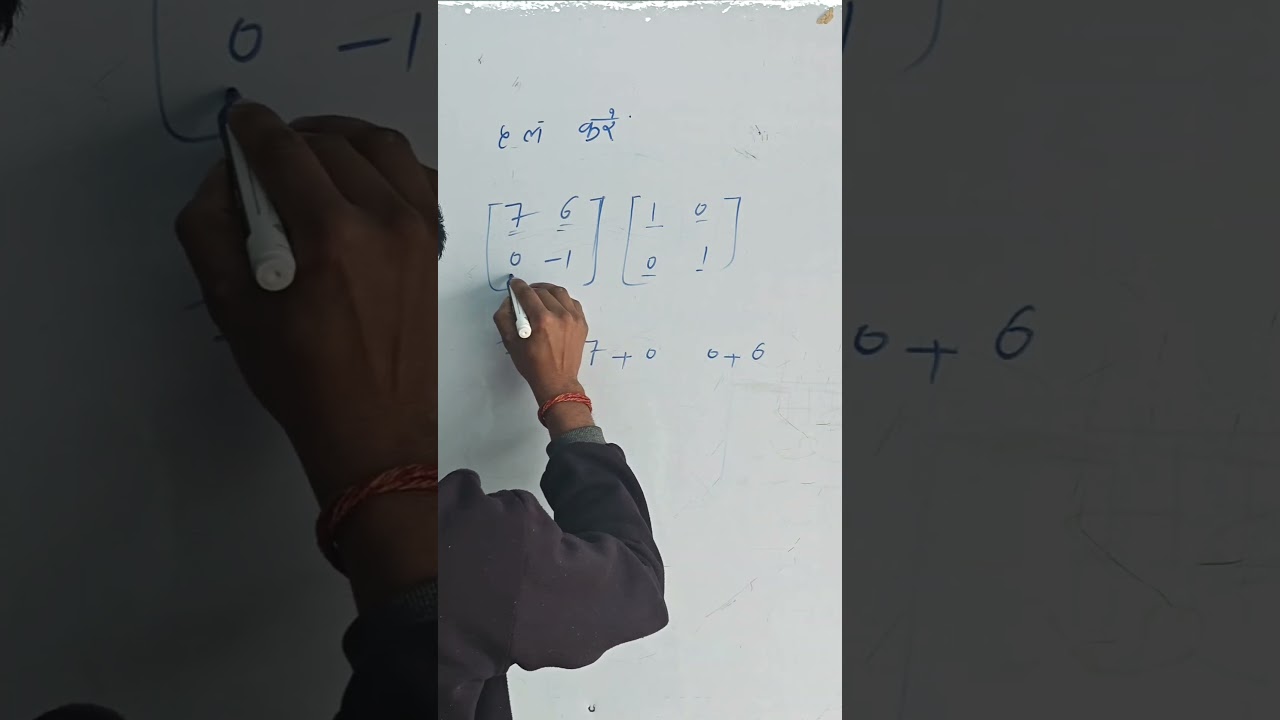 हल करें
[7 6] [1 0]
[0 -1] [0 1]
7 + 0 0 + 6